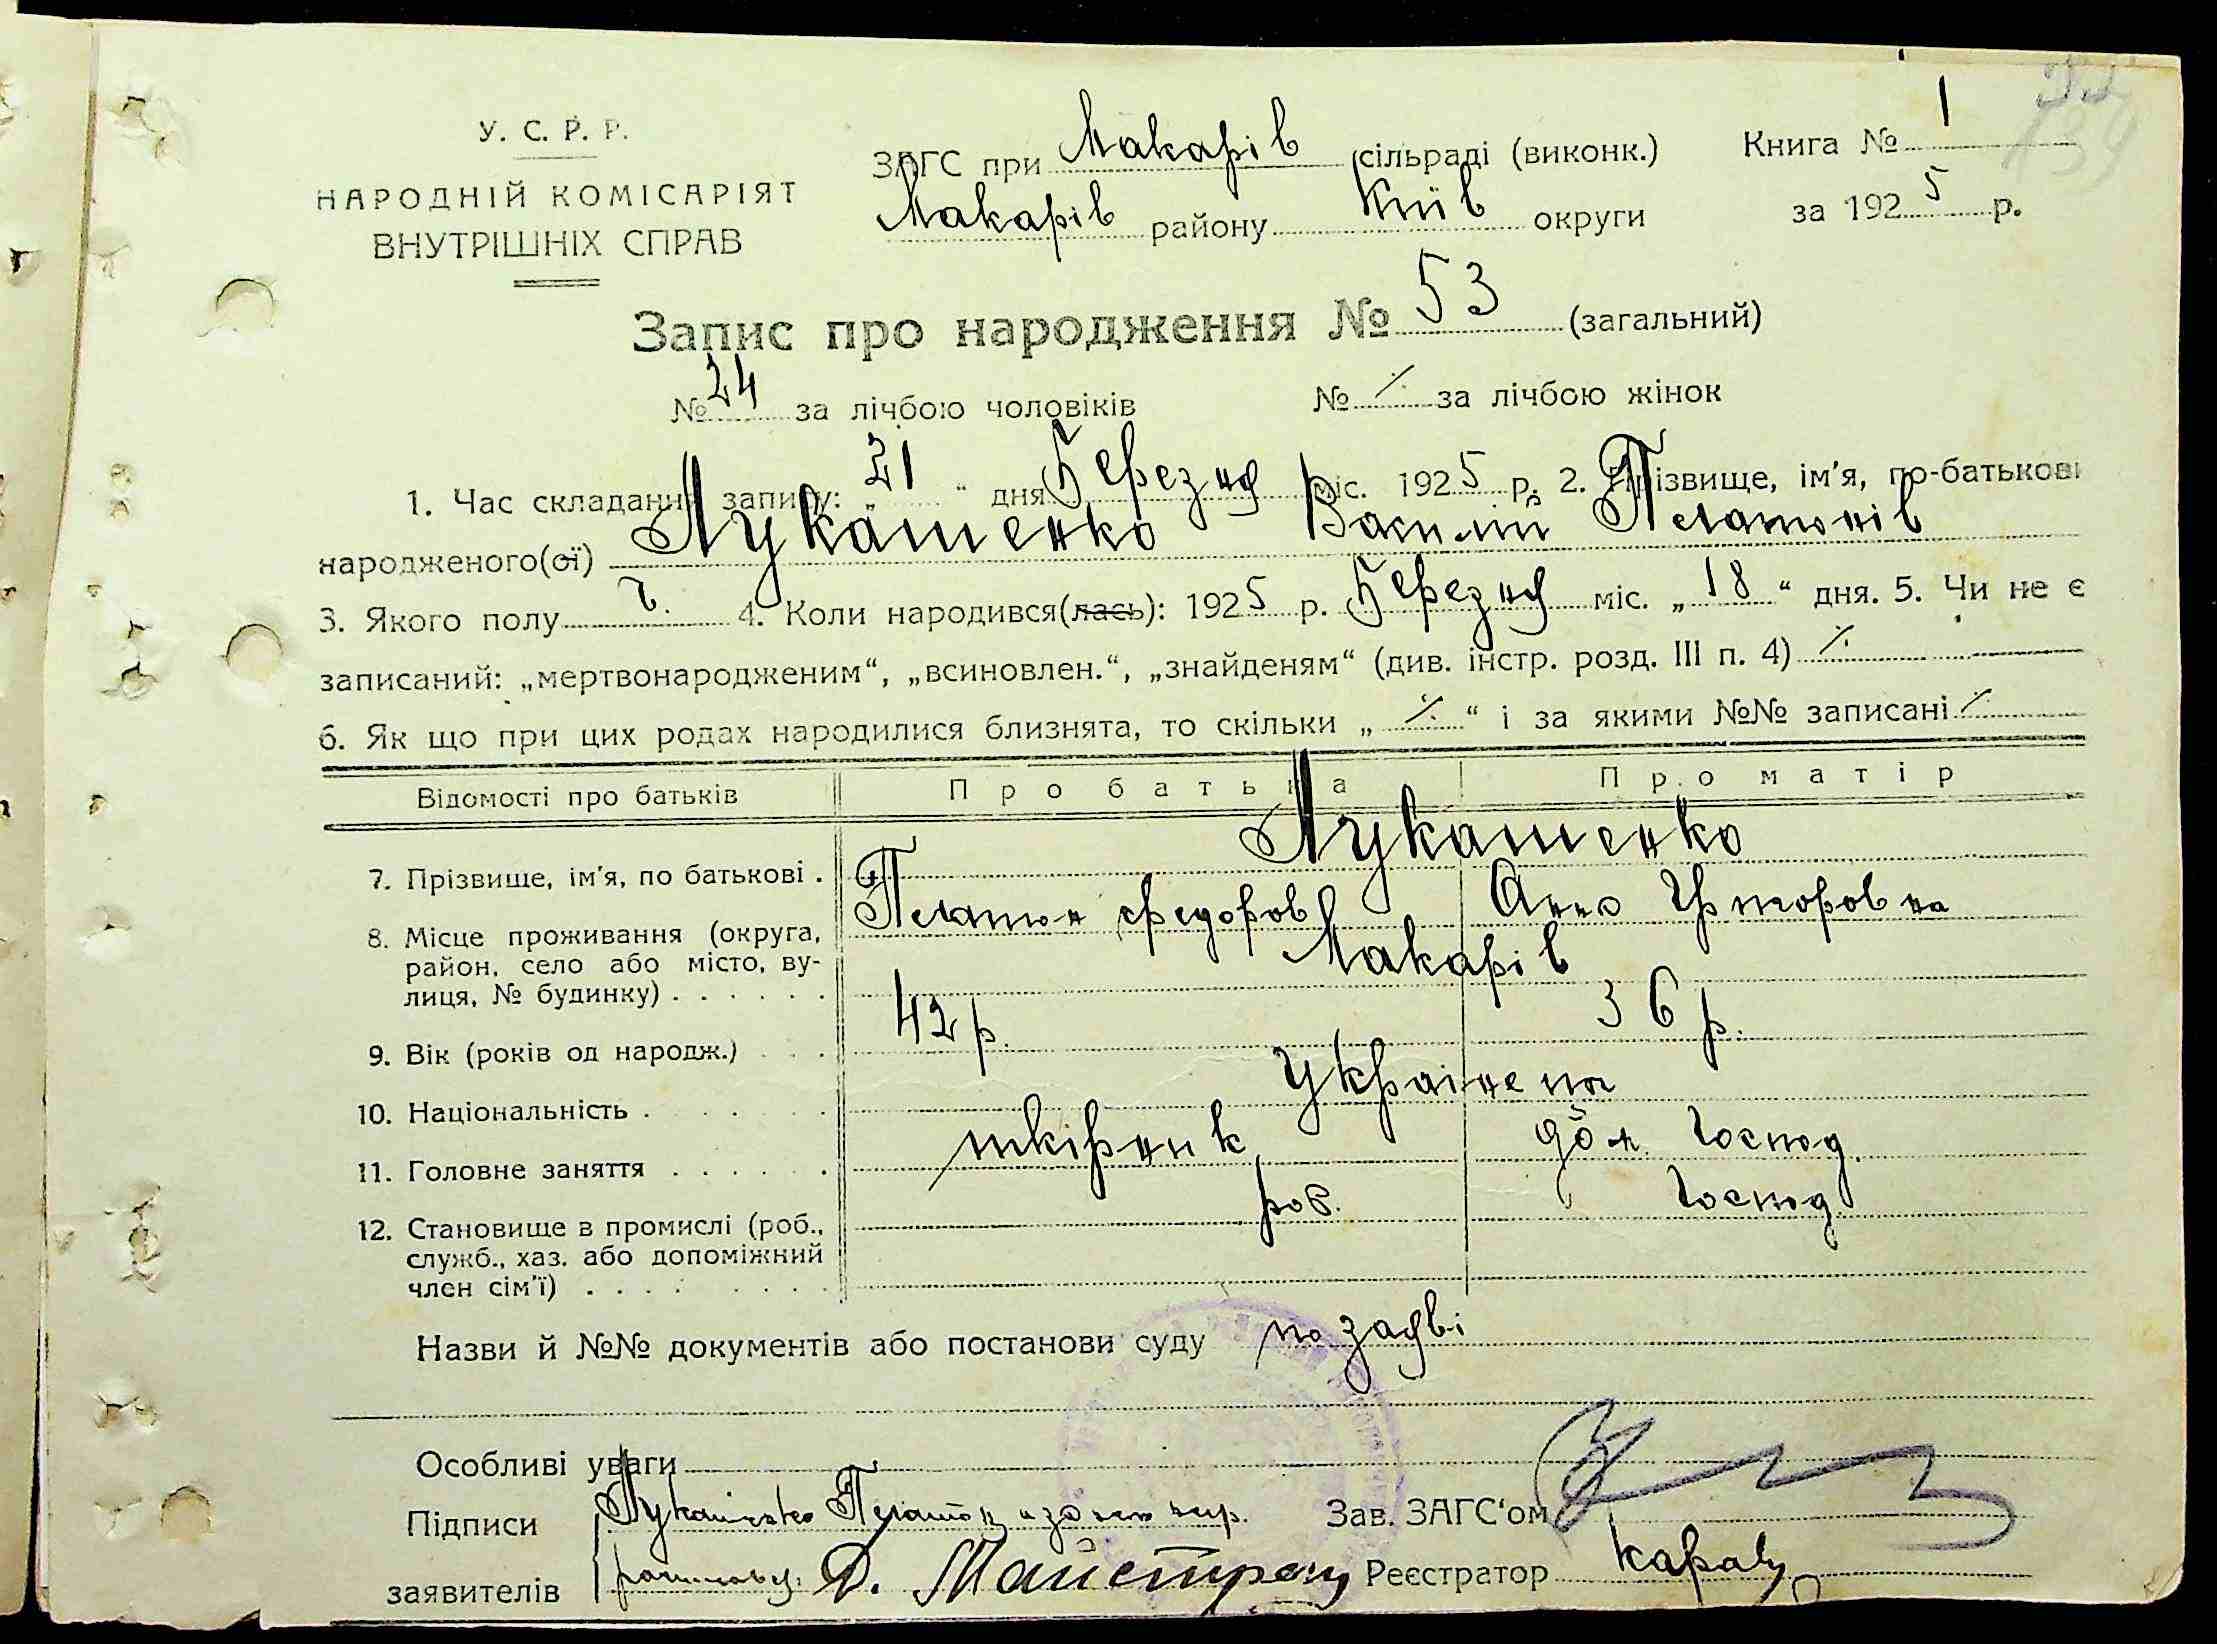 У. С. Р. Р.
НАРОДНІЙ КОМІСАРІЯТ
ВНУТРІШНІХ СПРАВ
ЗАГС при Макарів сільраді (виконк.)
Макарів району Київ округи
Книга № 1
за 1925 р.
Запис про народження № 53 (загальний)
№ 24 за лічбою чоловіків № ٪ за лічбою жінок
1. Час складання запису: „21“ дня Березня міс. 1925 р. 2. Прізвище, ім'я, по-батькові
народженого(ої) Лукашенко Василій Платонів
3. Якого полу ч. 4. Коли народився(лась): 1925 р. Березня міс. „18“ дня. 5. Чи не є
записаний: „мертвонародженим“, „всиновлен.“, „знайденям“ (див. інстр. розд. III п. 4) ٪
6. Як що при цих родах народилися близнята, то скільки „٪“ і за якими №№ записані ٪
Відомості про батьків Про батька Про матір
Лукашенко
7. Прізвище, ім'я, по батькові . Платон Федоров Анна
8. Місце проживання (округа, район, село або місто, ву-
лиця, № будинку) . . . . . . Макарів
9. Вік (років од народж.) . . . 42 р. 36 р.
10. Національність . . . . . Українец
11. Головне заняття . . . . . . шкірник дом. господ.
12. Становище в промислі (роб., роб. господ.
служб., хаз. або допоміжний
член сім'ї) . . . . . . . .
Назви й №№ документів або постанови суду по заяві
Особливі уваги
Підписи Лукашенко Платон Зав. ЗАГС'ом
заявителів Д. Реєстратор